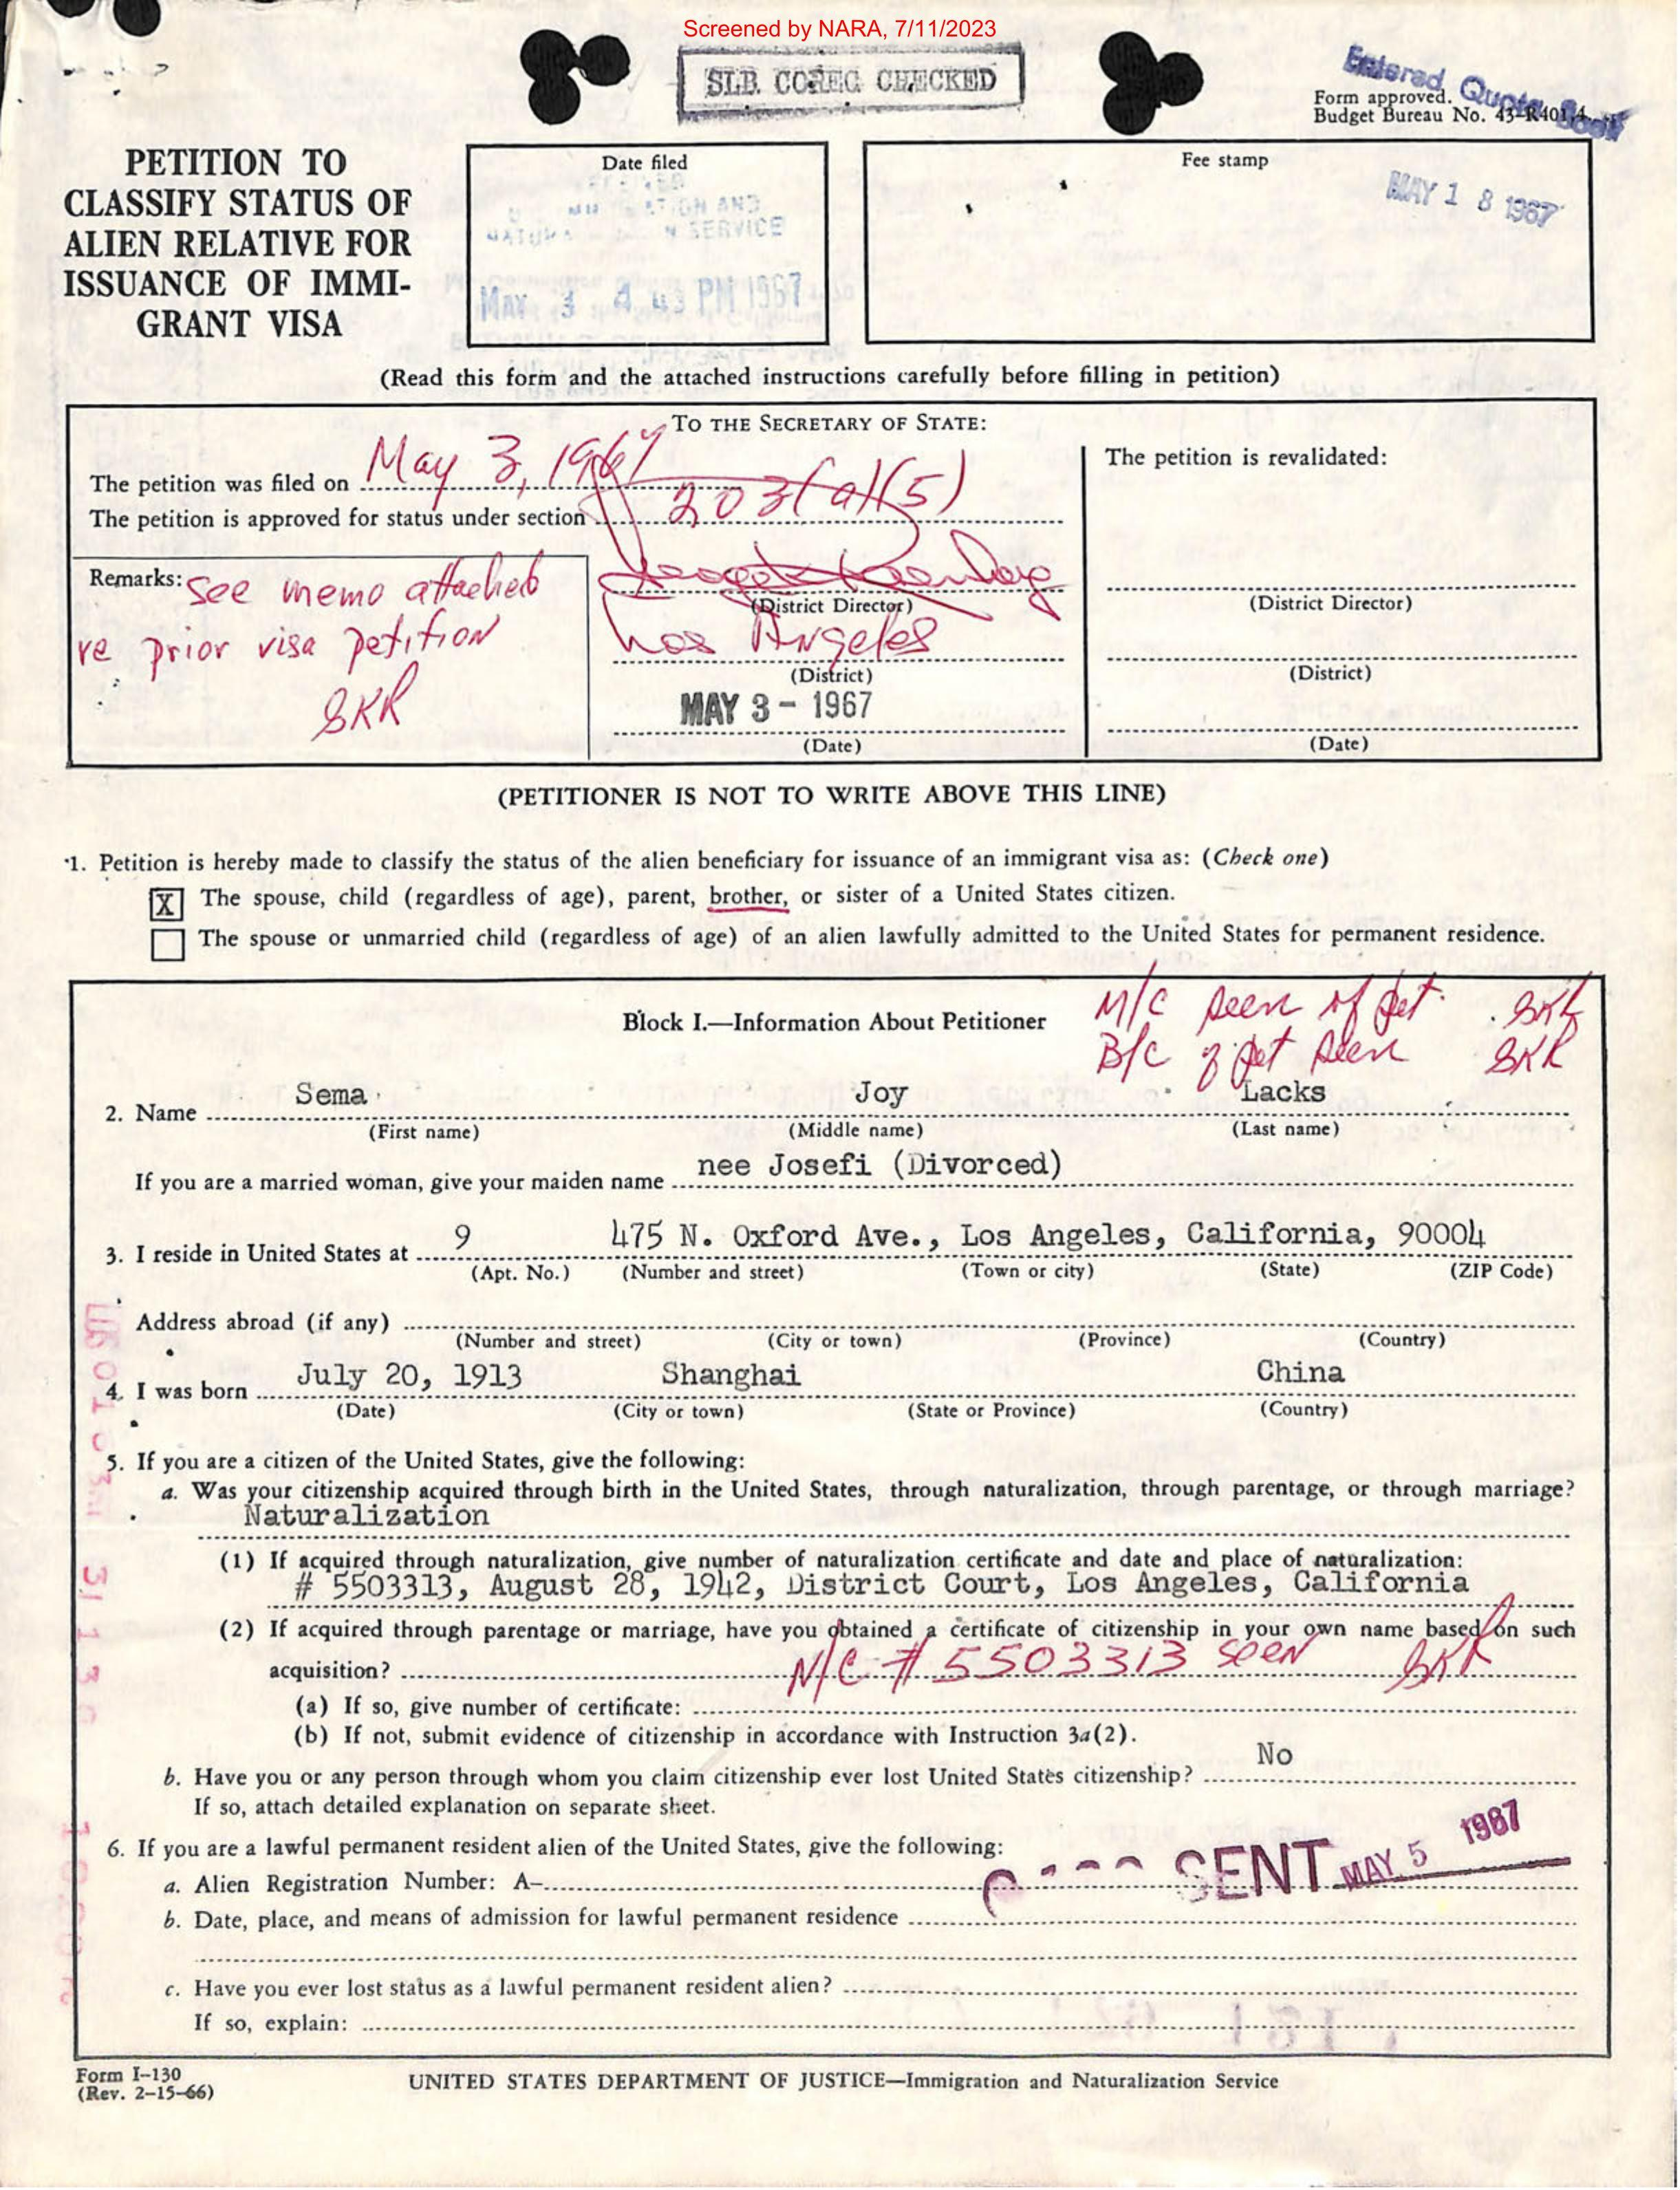 Screened by NARA, 7/11/2023
SLB. COREG CHECKED
Entered Quota Book
Form approved.
Budget Bureau No. 43-R401.4
PETITION TO
CLASSIFY STATUS OF
ALIEN RELATIVE FOR
ISSUANCE OF IMMI-
GRANT VISA
Date filed
SERVICE
MAY 3 4 43 PM 1967
Fee stamp
MAY 18 1967
(Read this form and the attached instructions carefully before filling in petition)
TO THE SECRETARY OF STATE:
The petition was filed on May 3, 1967
The petition is approved for status under section 203(a)(5)
Remarks: see memo attached
re prior visa petition
SKR
(District Director)
Los Angeles
(District)
MAY 3 - 1967
(Date)
The petition is revalidated:
(District Director)
(District)
(Date)
(PETITIONER IS NOT TO WRITE ABOVE THIS LINE)
1. Petition is hereby made to classify the status of the alien beneficiary for issuance of an immigrant visa as: (Check one)
X The spouse, child (regardless of age), parent, brother, or sister of a United States citizen.
The spouse or unmarried child (regardless of age) of an alien lawfully admitted to the United States for permanent residence.
Block I.—Information About Petitioner
M/C seen of pet. SKR
B/C of pet seen SKR
2. Name Sema Joy Lacks
(First name) (Middle name) (Last name)
If you are a married woman, give your maiden name nee Josefi (Divorced)
3. I reside in United States at 9 475 N. Oxford Ave., Los Angeles, California, 90004
(Apt. No.) (Number and street) (Town or city) (State) (ZIP Code)
Address abroad (if any)
(Number and street) (City or town) (Province) (Country)
4. I was born July 20, 1913 Shanghai China
(Date) (City or town) (State or Province) (Country)
5. If you are a citizen of the United States, give the following:
a. Was your citizenship acquired through birth in the United States, through naturalization, through parentage, or through marriage?
Naturalization
(1) If acquired through naturalization, give number of naturalization certificate and date and place of naturalization:
# 5503313, August 28, 1942, District Court, Los Angeles, California
(2) If acquired through parentage or marriage, have you obtained a certificate of citizenship in your own name based on such
acquisition? N/C # 5503313 seen SKR
(a) If so, give number of certificate:
(b) If not, submit evidence of citizenship in accordance with Instruction 3a(2).
b. Have you or any person through whom you claim citizenship ever lost United States citizenship? No
If so, attach detailed explanation on separate sheet.
6. If you are a lawful permanent resident alien of the United States, give the following:
SENT MAY 5 1967
a. Alien Registration Number: A–
b. Date, place, and means of admission for lawful permanent residence
c. Have you ever lost status as a lawful permanent resident alien?
If so, explain:
Form I–130
(Rev. 2–15–66)
UNITED STATES DEPARTMENT OF JUSTICE—Immigration and Naturalization Service